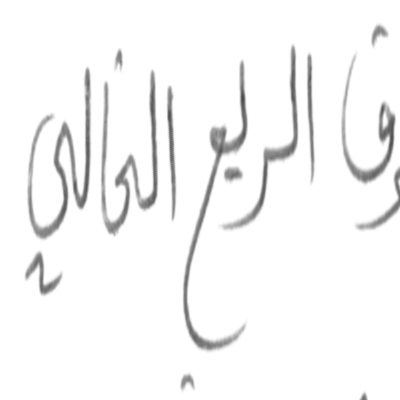 الربع الخالي